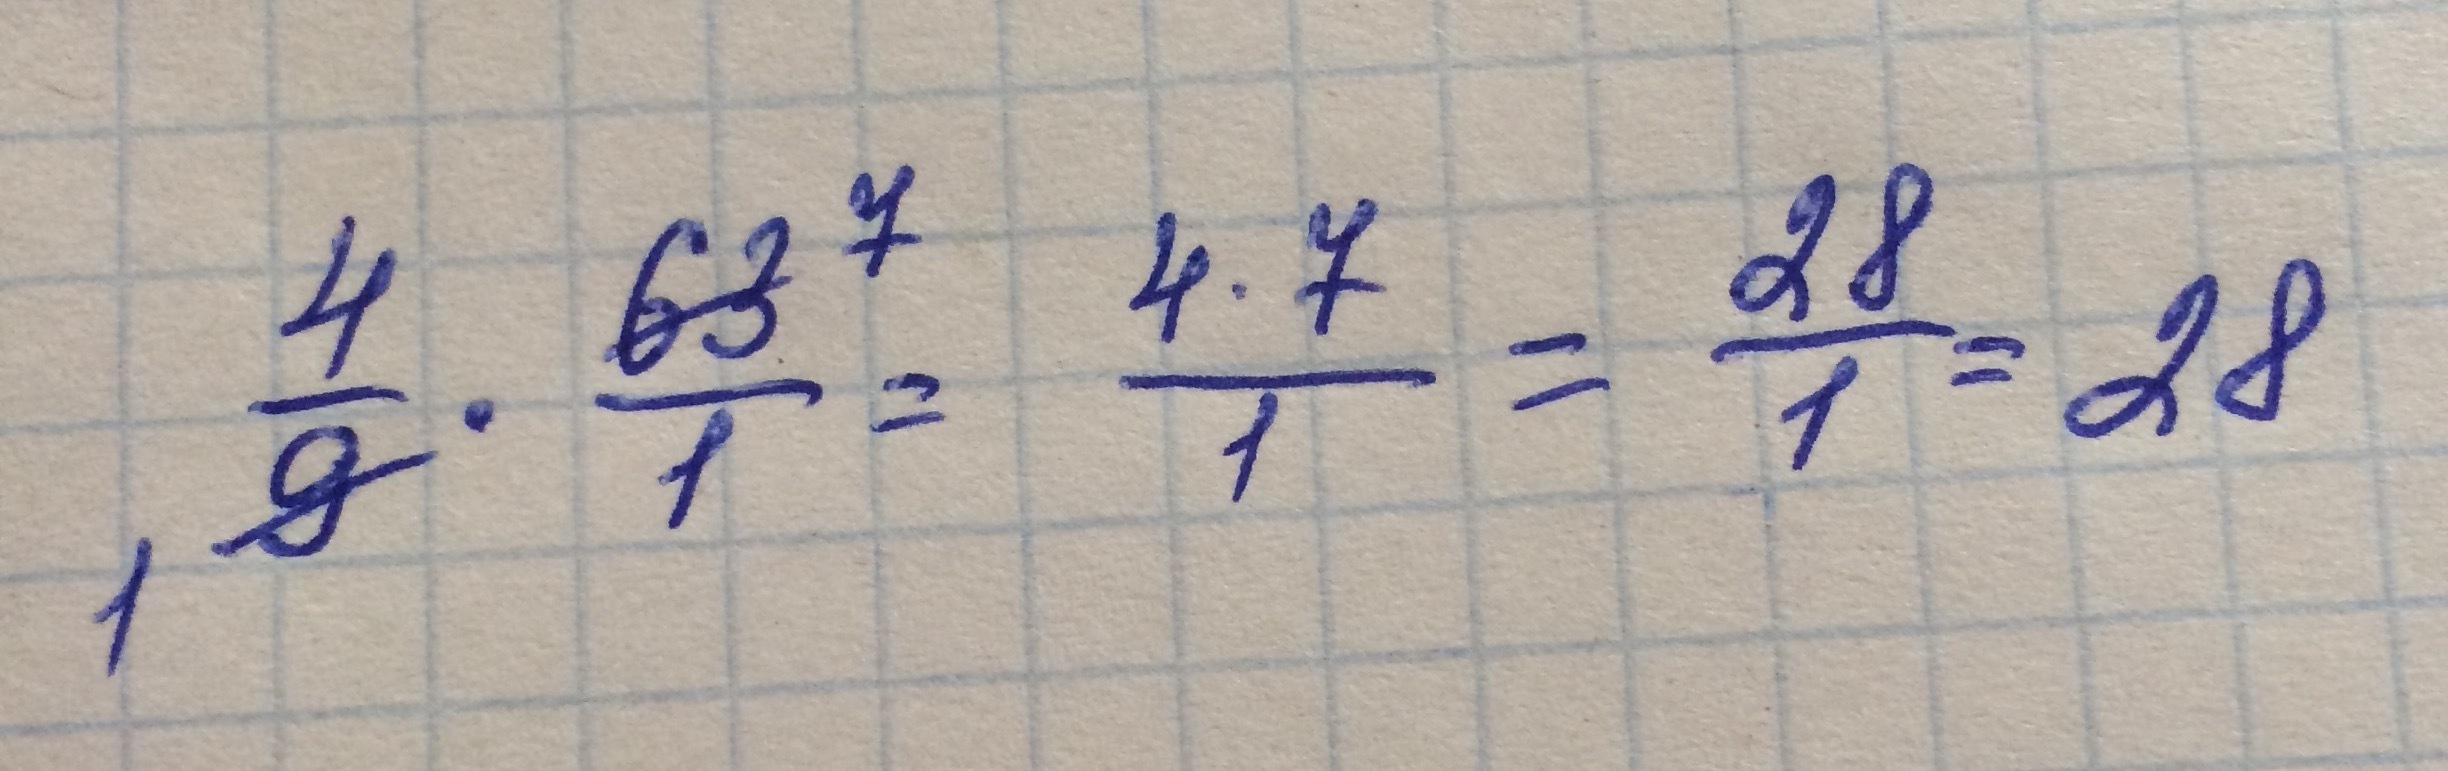 4/9 · 63/1 = 4·7/1 = 28/1 = 28
1 7